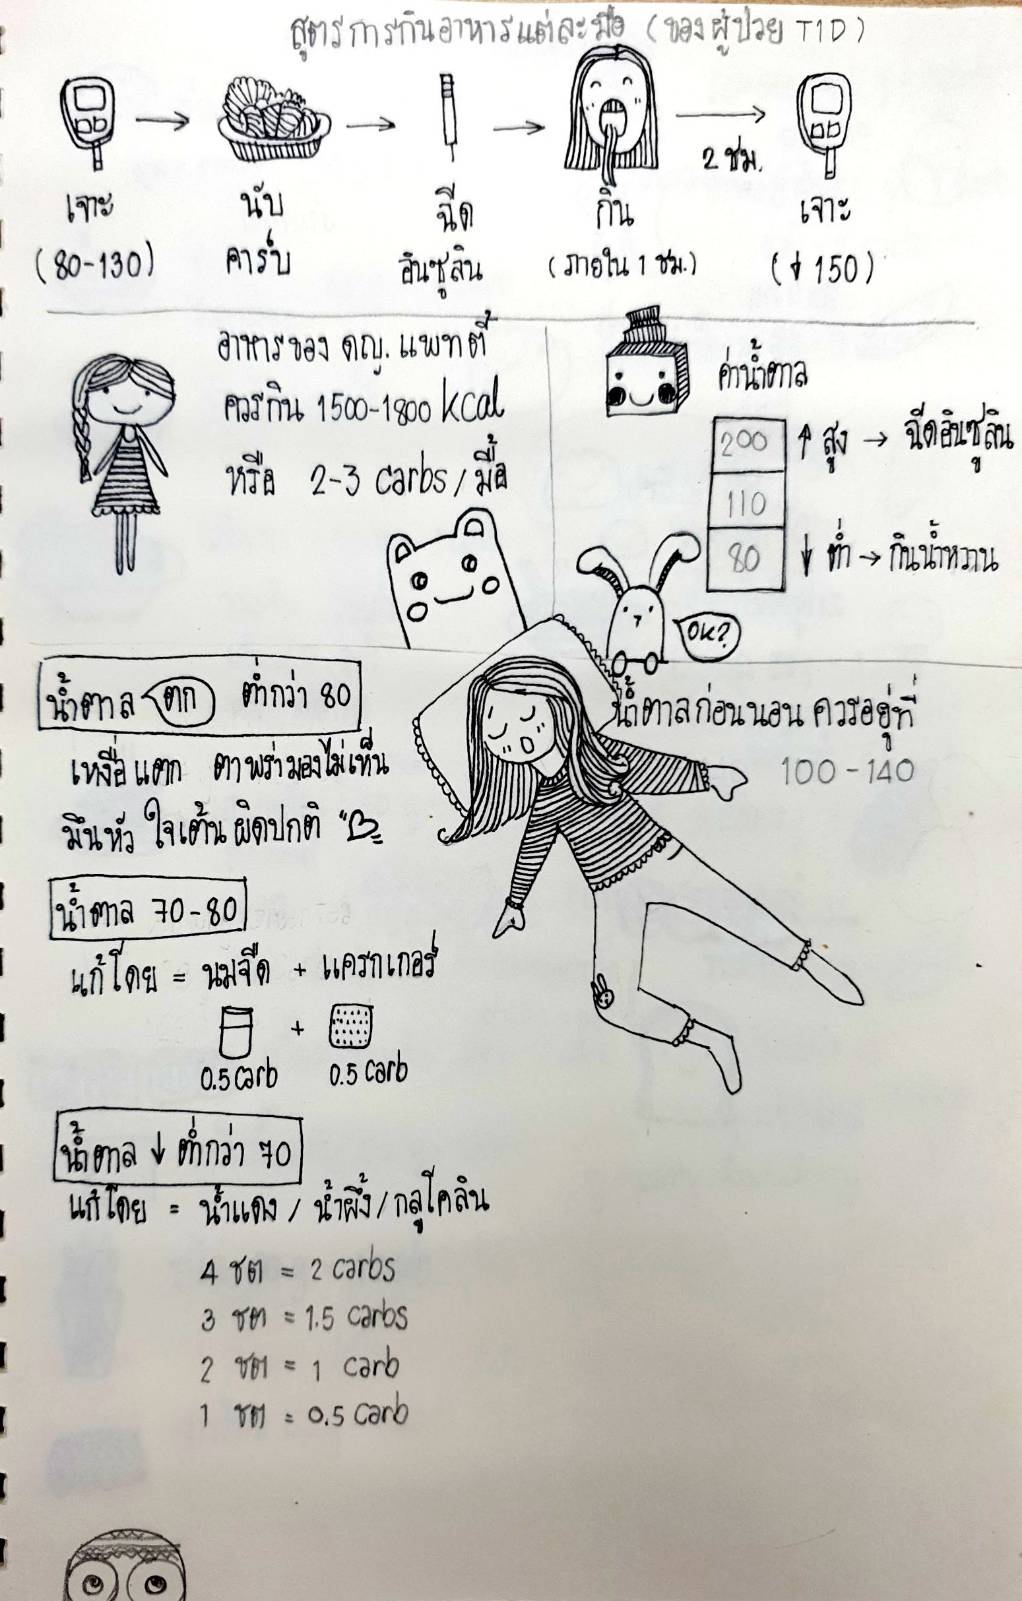 สูตรการกินอาหารแต่ละมื้อ (ของผู้ป่วย T1D)
2 ชม.
เจาะ นับ ฉีด กิน เจาะ
(80-130) คาร์บ อินซูลิน (ภายใน 1 ชม.) (↓150)
อาหารของ ดญ. แพทตี้
ควรกิน 1500-1800 kcal
หรือ 2-3 carbs/มื้อ
ค่าน้ำตาล
200 ↑ สูง → ฉีดอินซูลิน
110
80 ↓ ต่ำ → กินน้ำหวาน
OK?
น้ำตาล ตก ต่ำกว่า 80
เหงื่อแตก ตาพร่ามองไม่เห็น
มึนหัว ใจเต้นผิดปกติ
น้ำตาลก่อนนอน ควรอยู่ที่
100-140
น้ำตาล 70-80
แก้โดย = นมจืด + แครกเกอร์
+
0.5 carb 0.5 carb
น้ำตาล ↓ ต่ำกว่า 70
แก้โดย = น้ำแดง / น้ำผึ้ง / กลูโคลิน
4 ชต = 2 carbs
3 ชต = 1.5 carbs
2 ชต = 1 carb
1 ชต = 0.5 carb